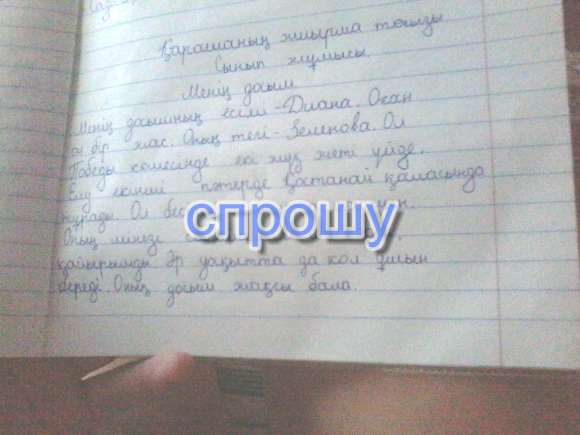 Қарашаның жиырма тоғызы
Сынып жұмысы.
Менің досым
Менің досымның есімі - Диана. Оған
он бір жас. Оның тегі - Зеленова. Ол
Победы көшесінде екі жүз жеті үйде.
Елу екінші пәтерде Қостанай қаласында
тұрады. Ол бес
спрошу
Оның мінезі
қайырымды. Әр уақытта да кол ұшын
береді. Оның досым жақсы бала.